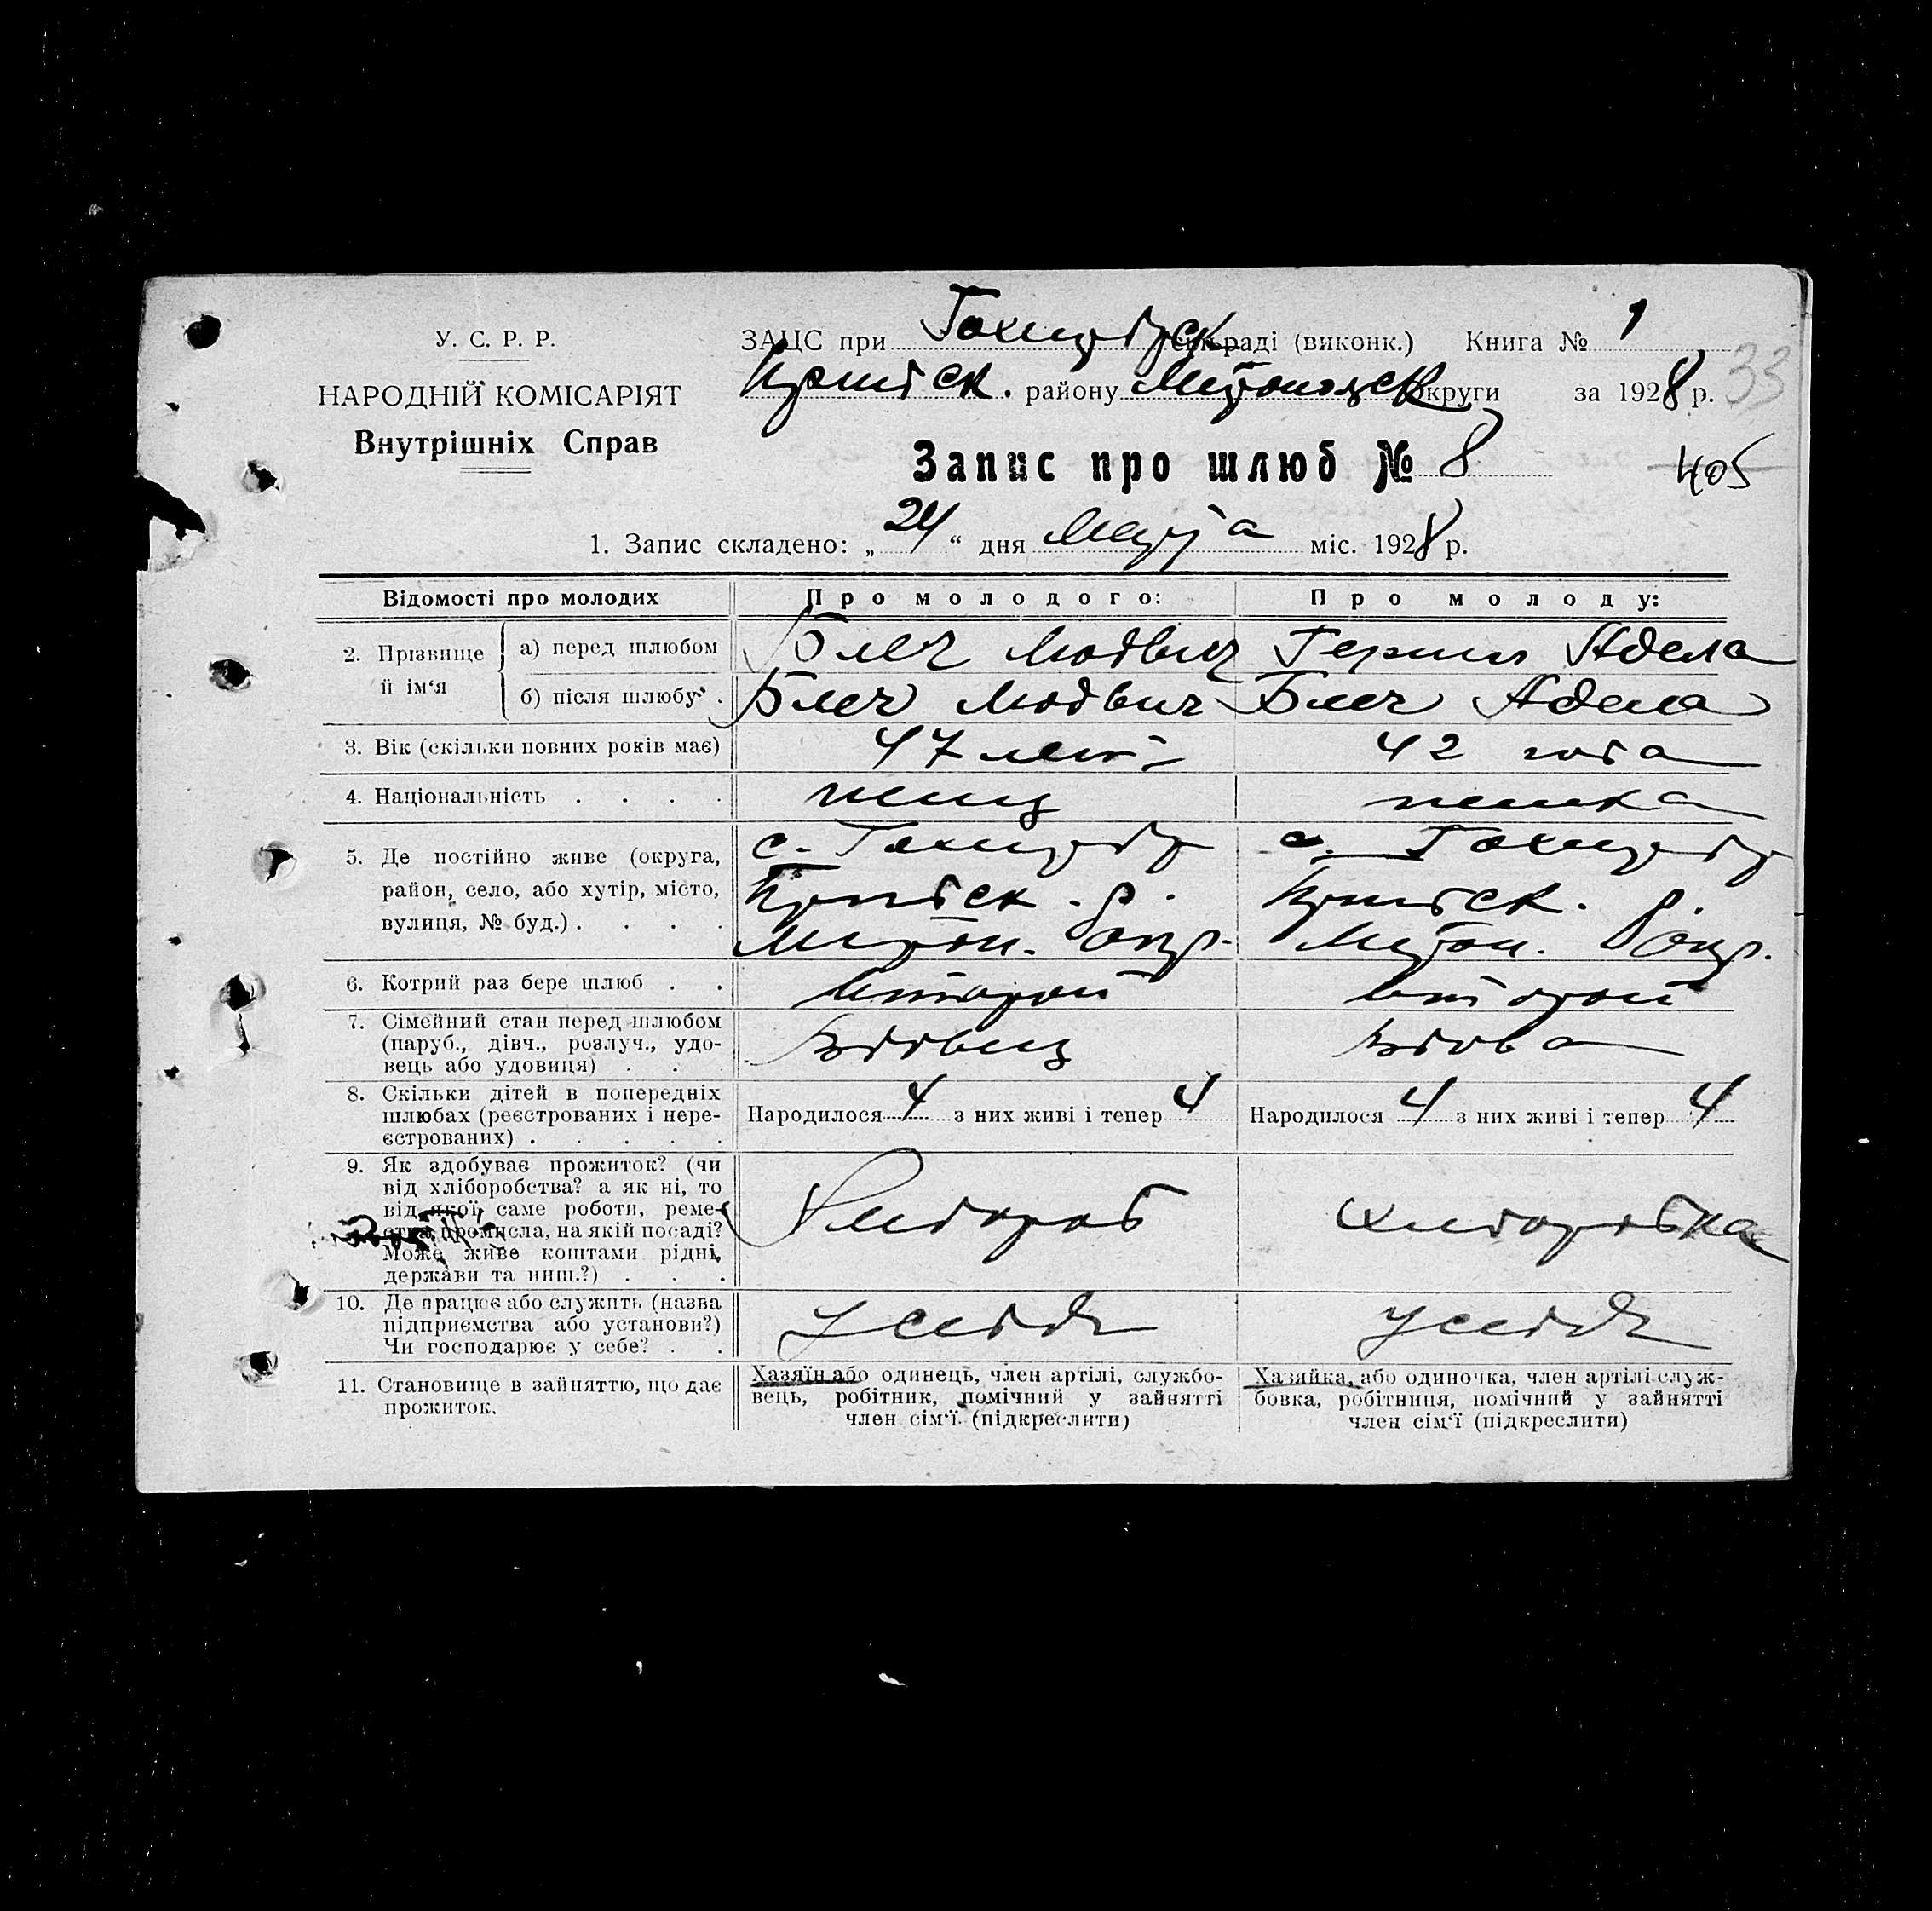 У. С. Р. Р.
НАРОДНІЙ КОМІСАРІЯТ
Внутрішніх Справ
ЗАЦС при раді (виконк.) Книга № 1
33
району округи за 1928 р.
Запис про шлюб № 8
405
1. Запис складено: „24“ дня Марта міс. 1928 р.
Відомості про молодих Про молодого: Про молоду:
2. Прізвище й ім‘я
а) перед шлюбом Блех Людвиг Адела
б) після шлюбу Блех Людвиг Блех Адела
3. Вік (скільки повних років має) 47 лет 42 года
4. Національність немец немка
5. Де постійно живе (округа,
район, село, або хутір, місто,
вулиця, № буд.)
с. с.
р. р.
окр. окр.
6. Котрий раз бере шлюб второй второй
7. Сімейний стан перед шлюбом
(паруб., дівч., розлуч., удо-
вець або удовиця)
вдовец вдова
8. Скільки дітей в попередніх
шлюбах (реєстрованих і нере-
єстрованих)
Народилося 4 з них живі і тепер 4 Народилося 4 з них живі і тепер 4
9. Як здобуває прожиток? (чи
від хліборобства? а як ні, то
від якої саме роботи, реме-
ства, промисла, на якій посаді?
Може живе коштами рідні,
держави та инш.?)
Хлібороб хліборобка
10. Де працює або служить (назва
підприємства або установи?)
Чи господарює у себе?
У себя У себя
11. Становище в зайняттю, що дає
прожиток.
Хазяїн або одинець, член артілі, службо-
вець, робітник, помічний у зайнятті
член сім‘ї (підкреслити)
Хазяйка, або одиночка, член артілі служ-
бовка, робітниця, помічний у зайнятті
член сім‘ї (підкреслити)